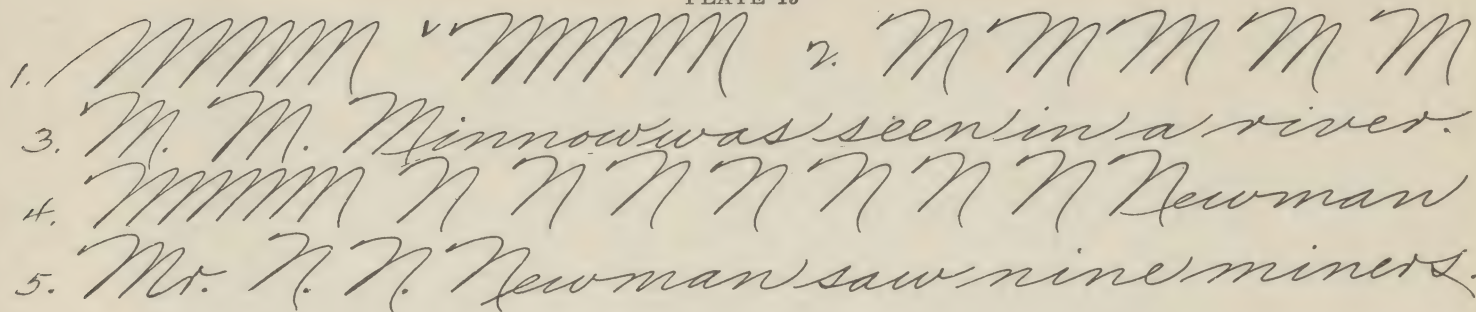 PLATE 19
1. 2. M M M M M
3. M. M. Minnow was seen in a river.
4. N N N N N N N Newman
5. Mr. N. N. Newman saw nine miners.